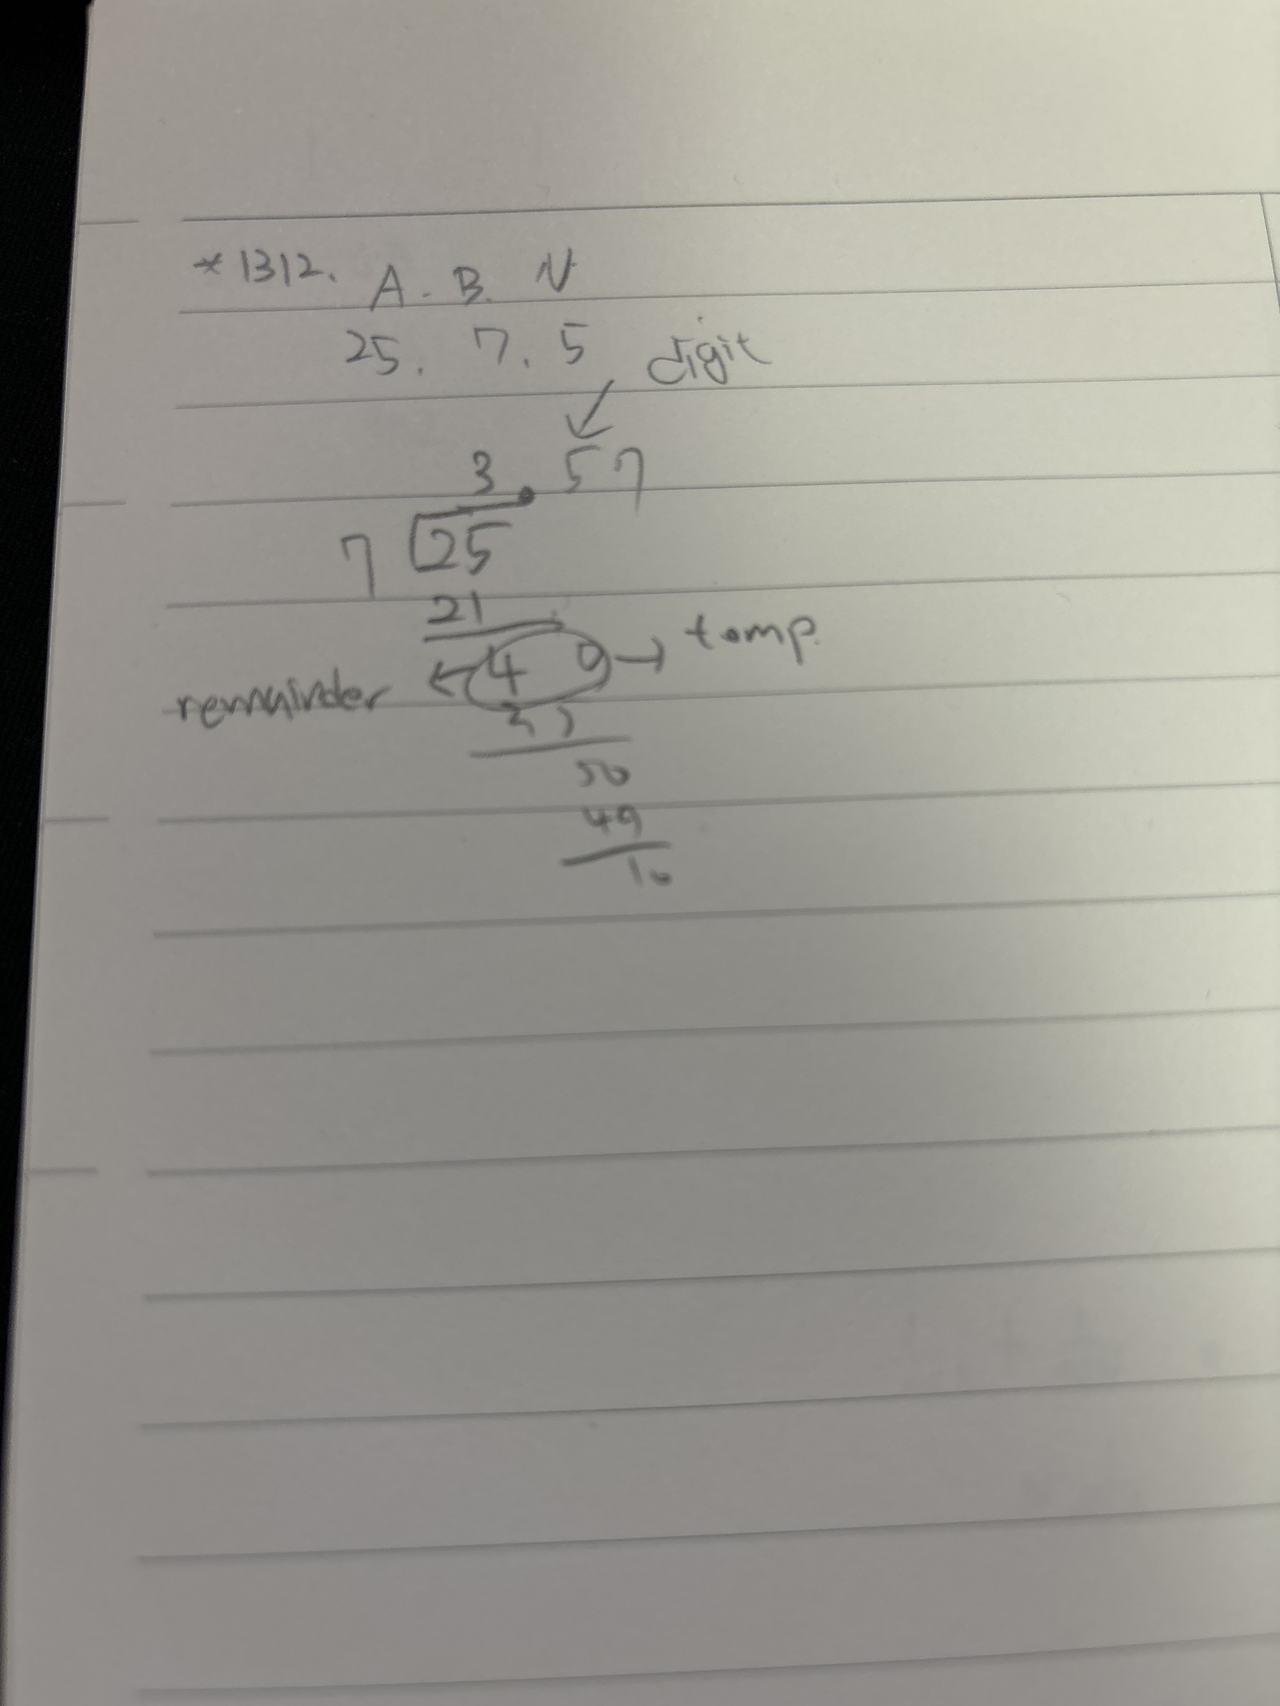 * 1312. A. B. N
25. 7. 5
digit
3.57
7 25
21
remainder 40 temp.
35
50
49
10